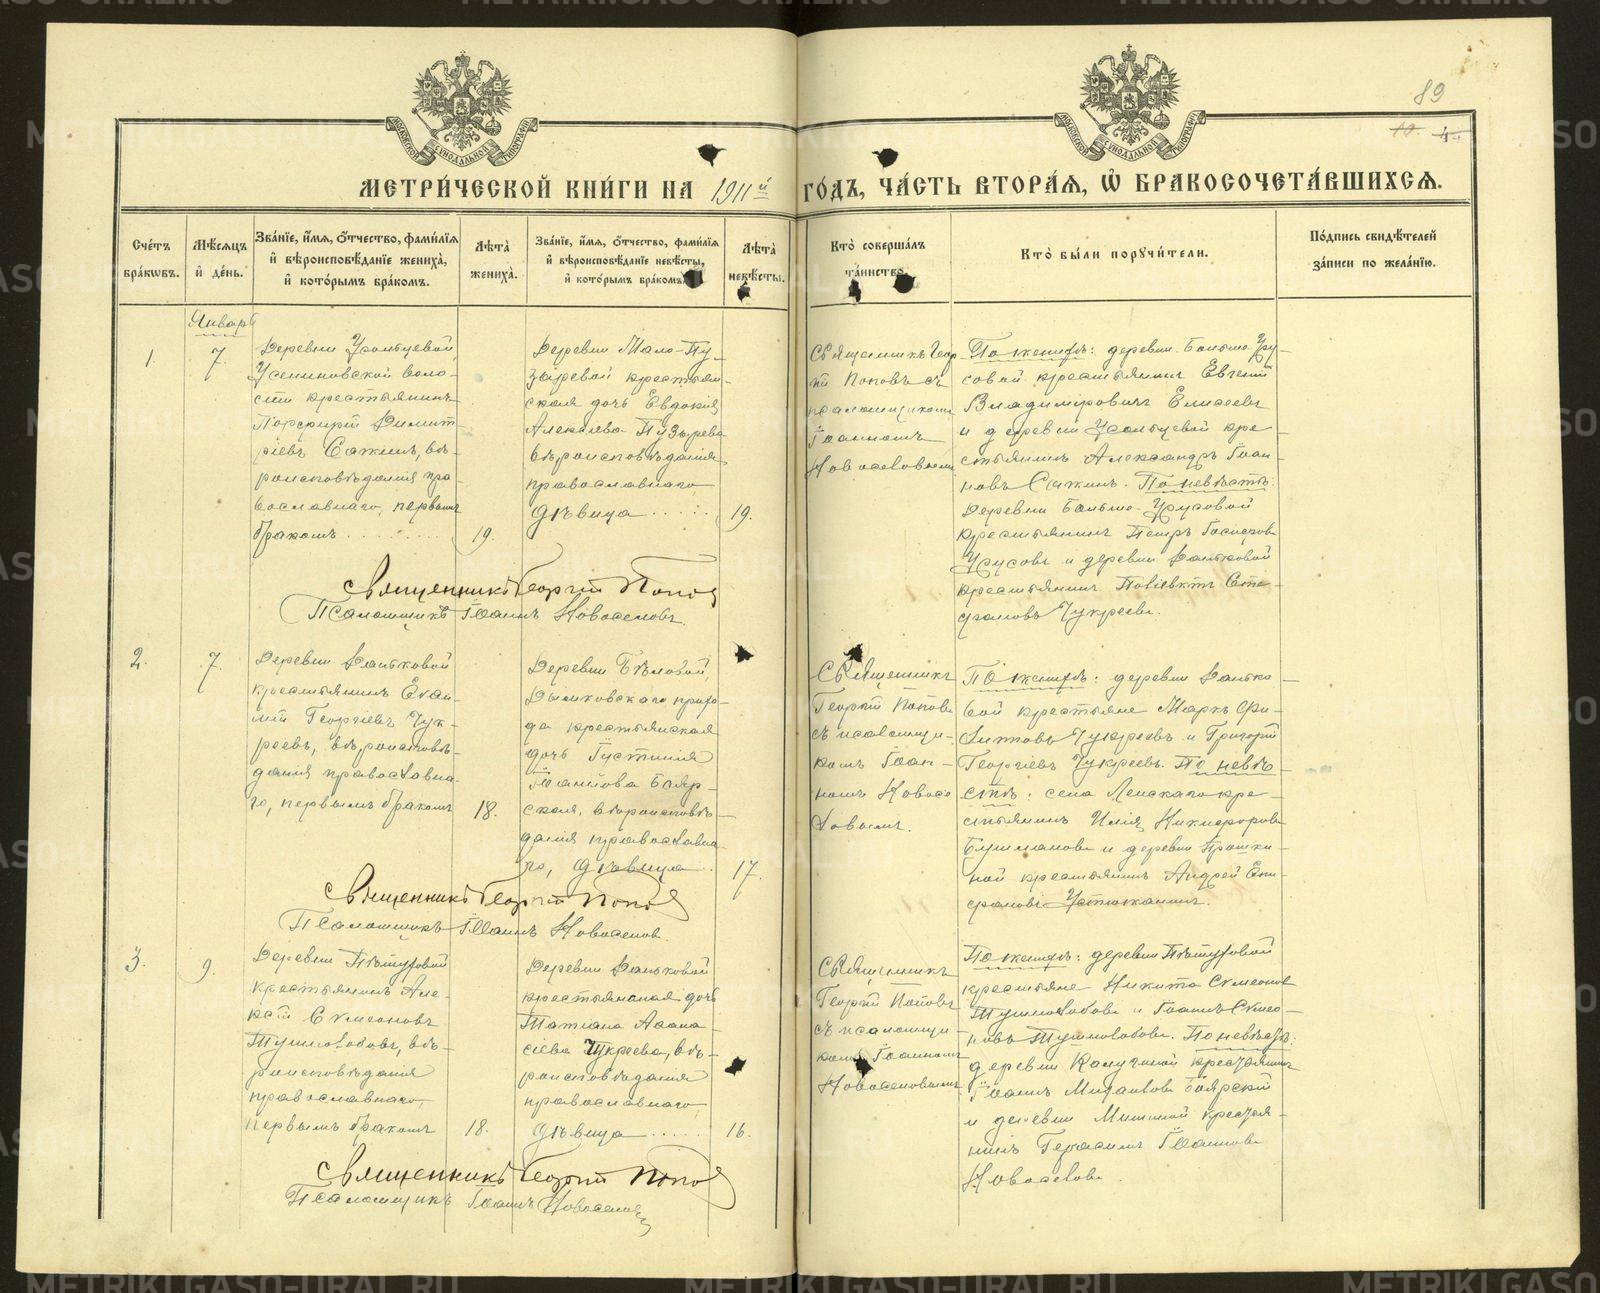 89
МЕТРИЧЕСКОЙ КНИГИ НА 1911й ГОДЪ, ЧАСТЬ ВТОРАЯ, Ѡ БРАКОСОЧЕТАВШИХСЯ.
Счетъ браковъ.
Мѣсяцъ и день.
Званіе, имя, отчество, фамилія и вѣроисповѣданіе жениха, и которымъ бракомъ.
Лѣта жениха.
Званіе, имя, отчество, фамилія и вѣроисповѣданіе невѣсты, и которымъ бракомъ.
Лѣта невѣсты.
Кто совершалъ таинство.
Кто были поручители.
Подпись свидѣтелей записи по желанію.
Январь
1.
7.
Деревни Усольцевой,
Усениновской воло-
сти крестьянинъ
Порфирій Димит-
ріевъ Сажинъ, вѣ-
роисповѣданія пра-
вославнаго, первымъ
бракомъ
19.
Деревни Мало-Пу-
зыревой крестьян-
ская дочь Евдокія
Алексіева Пузырева
вѣроисповѣданія
православнаго
дѣвица
19.
Священникъ Геор-
гій Поповъ съ
псаломщикомъ
Іоанномъ
Новоселовымъ
По женихѣ: деревни Больше-Уру-
совой крестьянинъ Евгеній
Владиміровичъ Елисеевъ
и деревни Усольцевой кре-
стьянинъ Александръ Іоан-
новъ Сажинъ. По невѣстѣ:
деревни Больше-Урусовой
крестьянинъ Петръ
Урусовъ и деревни
крестьянинъ Поліевктъ Сте-
фановъ Чукреевъ.
Священникъ Георгій Поповъ
Псаломщикъ Іоаннъ Новоселовъ.
2.
7.
Деревни
крестьянинъ
Георгіевъ Чук-
реевъ, вѣроисповѣ-
данія православна-
го, первымъ бракомъ
18.
Деревни Бѣловой,
Дымковскаго прихо-
да крестьянская
дочь Іустинія
Іоаннова Бояр-
ская, вѣроисповѣ-
данія православна-
го, дѣвица
17.
Священникъ
Георгій Поповъ
съ псаломщи-
комъ Іоан-
номъ Новосе-
ловымъ.
По женихѣ: деревни
крестьяне Маркъ Фи-
липповъ Чукреевъ и Григорій
Георгіевъ Чукреевъ. По невѣ-
стѣ: села Ленскаго кре-
стьянинъ Илія Никифоровъ
Бушмановъ и деревни Прошки-
ной крестьянинъ Андрей
Устюжанинъ.
Священникъ Георгій Поповъ
Псаломщикъ Іоаннъ Новоселов.
3.
9.
Деревни Пѣтуховой
крестьянинъ Але-
ксій Сѵмеоновъ
Тушнолобовъ, вѣ-
роисповѣданія
православнаго,
первымъ бракомъ
18.
Деревни
крестьянская дочь
Татіана Аѳана-
сіева Чукреева, вѣ-
роисповѣданія
православнаго,
дѣвица
16.
Священникъ
Георгій Поповъ
съ псаломщи-
комъ Іоанномъ
Новоселовымъ
По женихѣ: деревни Пѣтуховой
крестьяне Никита Сѵмеоновъ
Тушнолобовъ и Іоаннъ Сѵмео-
новъ Тушнолобовъ. По невѣстѣ:
деревни Калугиной крестьянинъ
Іоаннъ Михаиловъ Боярскій
и деревни Мишиной крестья-
нинъ Герасимъ Іоанновъ
Новоселовъ.
Священникъ Георгій Поповъ
Псаломщикъ Іоаннъ Новоселовъ